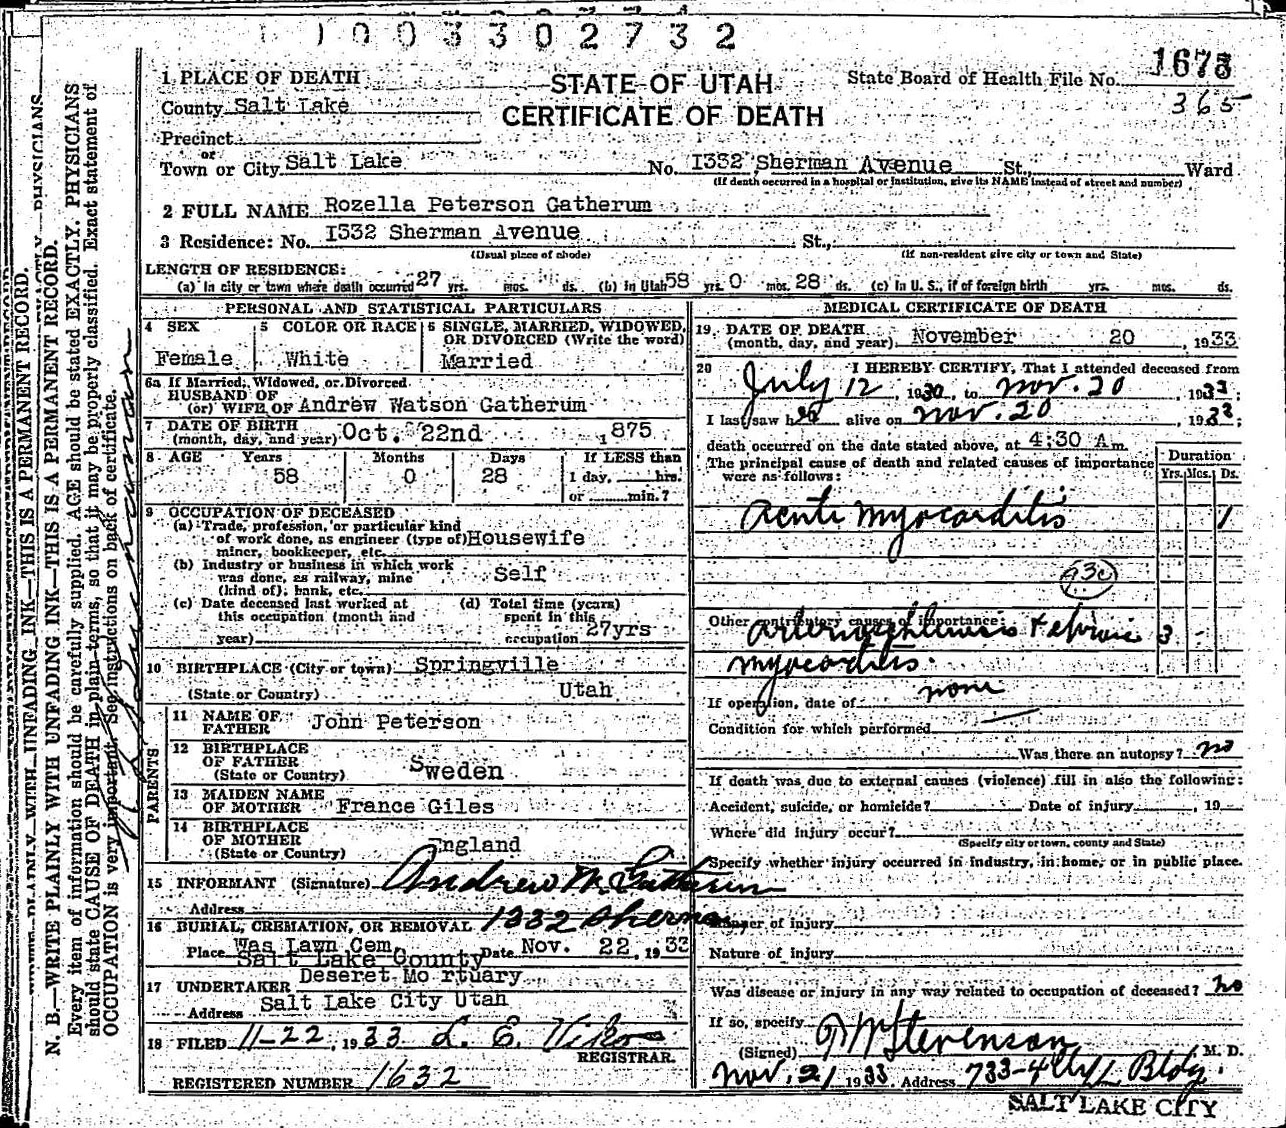 1003302732
1 PLACE OF DEATH
STATE OF UTAH
State Board of Health File No. 1673
365
County Salt Lake
CERTIFICATE OF DEATH
Precinct
or
Town or City Salt Lake No. 1332 Sherman Avenue St., Ward
(If death occurred in a hospital or institution, give its NAME instead of street and number)
2 FULL NAME Rozella Peterson Gatherum
3 Residence: No. 1332 Sherman Avenue St.,
(Usual place of abode) (If non-resident give city or town and State)
LENGTH OF RESIDENCE:
(a) In city or town where death occurred 27 yrs. mos. ds. (b) In Utah 58 yrs. 0 mos. 28 ds. (c) In U. S., if of foreign birth yrs. mos. ds.
PERSONAL AND STATISTICAL PARTICULARS
4 SEX 5 COLOR OR RACE 6 SINGLE, MARRIED, WIDOWED, OR DIVORCED (Write the word)
Female White Married
6a If Married, Widowed, or Divorced
HUSBAND OF
(or) WIFE OF Andrew Watson Gatherum
7 DATE OF BIRTH
(month, day, and year) Oct. 22nd 1875
8 AGE Years Months Days If LESS than
58 0 28 1 day, hrs.
or min.?
9 OCCUPATION OF DECEASED
(a) Trade, profession, or particular kind
of work done, as engineer (type of) Housewife
miner, bookkeeper, etc.
(b) Industry or business in which work
was done, as railway, mine Self
(kind of), bank, etc.
(c) Date deceased last worked at (d) Total time (years)
this occupation (month and spent in this
year) occupation 27yrs
10 BIRTHPLACE (City or town) Springville
(State or Country) Utah
PARENTS
11 NAME OF
FATHER John Peterson
12 BIRTHPLACE
OF FATHER
(State or Country) Sweden
13 MAIDEN NAME
OF MOTHER France Giles
14 BIRTHPLACE
OF MOTHER
(State or Country) England
15 INFORMANT (Signature) Andrew W. Gatherum
Address 1332 Sherman
16 BURIAL, CREMATION, OR REMOVAL
Place Was Lawn Cem. Date Nov. 22, 1933
Salt Lake County
17 UNDERTAKER Deseret Mortuary
Address Salt Lake City Utah
18 FILED 11-22, 1933 L. E. Viko
REGISTRAR.
REGISTERED NUMBER 1632
MEDICAL CERTIFICATE OF DEATH
19 DATE OF DEATH
(month, day, and year) November 20, 1933
20 I HEREBY CERTIFY, That I attended deceased from
July 12, 1930, to Nov. 20, 1933;
I last saw her alive on Nov. 20, 1933;
death occurred on the date stated above, at 4:30 Am.
The principal cause of death and related causes of importance
were as follows:
Duration
Yrs. Mos. Ds.
Acute Myocarditis 1
930
Other contributory causes of importance:
Arteriosclerosis + chronic 3 -
myocarditis.
If operation, date of none
Condition for which performed
Was there an autopsy? no
If death was due to external causes (violence) fill in also the following:
Accident, suicide, or homicide? Date of injury , 19
Where did injury occur?
(Specify city or town, county and State)
Specify whether injury occurred in industry, in home, or in public place.
Manner of injury
Nature of injury
Was disease or injury in any way related to occupation of deceased? no
If so, specify
(Signed) Stevenson M. D.
Nov. 21 1933 Address 733-4 Bldg.
SALT LAKE CITY
N. B.—WRITE PLAINLY WITH UNFADING INK—THIS IS A PERMANENT RECORD.
Every item of information should be carefully supplied. AGE should be stated EXACTLY. PHYSICIANS
should state CAUSE OF DEATH in plain terms, so that it may be properly classified. Exact statement of
OCCUPATION is very important. See instructions on back of certificate.